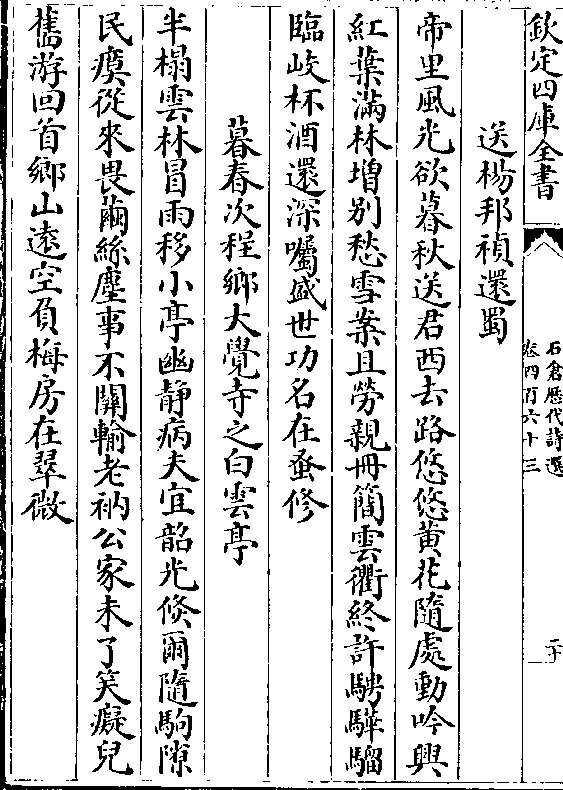 欽定四庫全書
石倉歷代詩選
卷四百六十三
送楊邦禎還蜀
帝里風光欲暮秋送君西去路悠悠黄花隨處動吟興
紅葉滿林増别愁雪案且勞親冊簡雲衢終許騁驊騮
臨岐杯酒還深囑盛世功名在蚤修
暮春次程鄉大覺寺之白雲亭
半榻雲林冒雨移小亭幽静病夫宜韶光倐爾隨駒隙
民瘼從來畏繭絲塵事不關輸老衲公家未了笑癡兒
舊游回首鄉山遠空負梅房在翠微